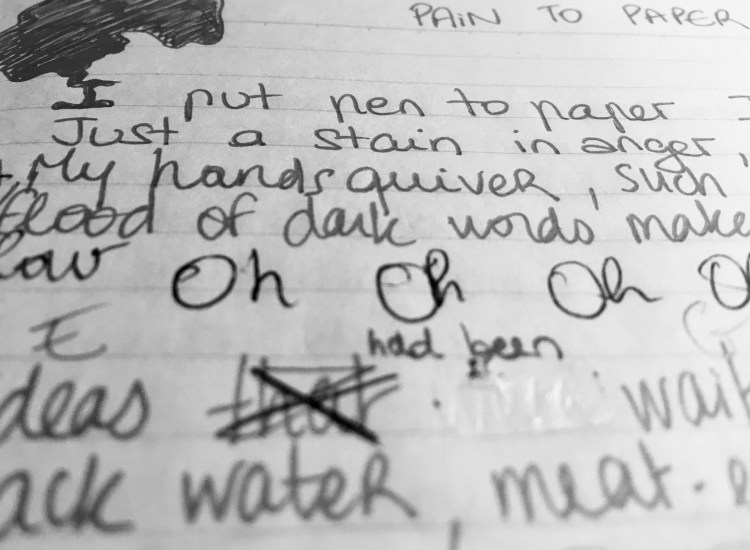 PAIN TO PAPER
I put pen to paper I
Just a stain in anger,
My hands quiver, such
flood of dark words make
low Oh Oh Oh Oh
E
had been
deas wait
ack water, meat.